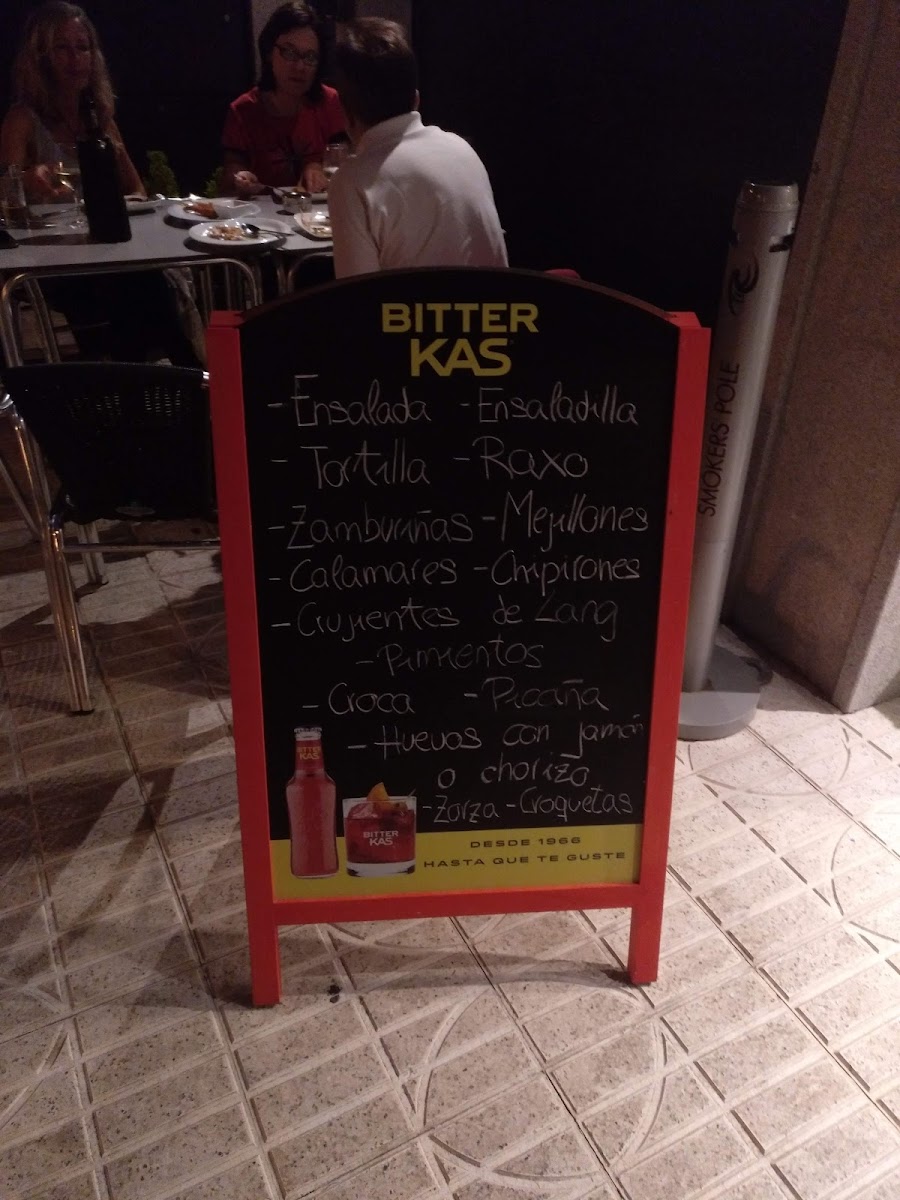 BITTER
KAS
- Ensalada - Ensaladilla
- Tortilla - Raxo
- Zamburiñas - Mejillones
- Calamares - Chipirones
- Crujientes de Lang
- Pimientos
- Croca - Picaña
- Huevos con jamón
o chorizo
- Zorza - Croquetas
BITTER
KAS
BITTER
KAS
DESDE 1966
HASTA QUE TE GUSTE
SMOKERS POLE